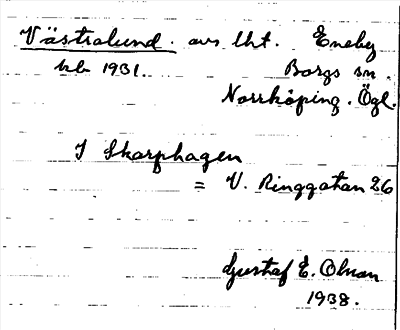 Västralund. avs lht. Eneby
hb 1931. Borgs sn.
Norrköping. Ögl.
I Skarphagen
= V. Ringgatan 26
Gustaf E. Olsson
1938.